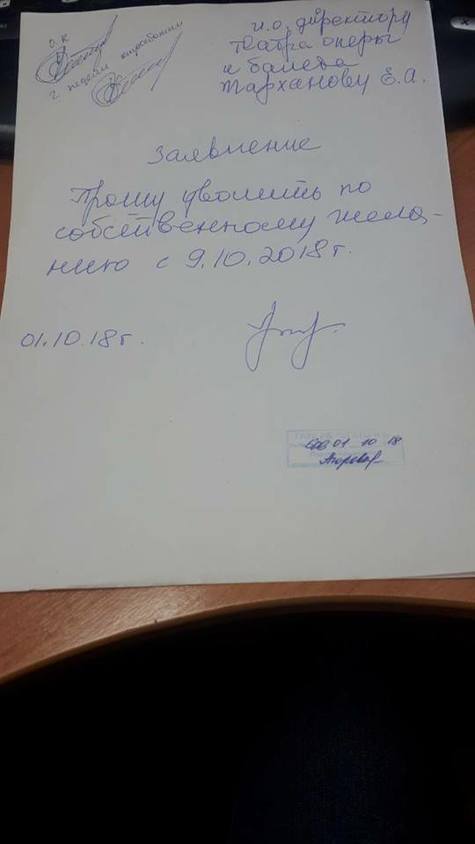 О.К
2 недели отработки
и.о. директору
театра оперы
и балета
Тарханову Е.А.
Заявление
Прошу уволить по
собственному жела-
нию с 9.10.2018г.
01.10.18г.
01 10 18